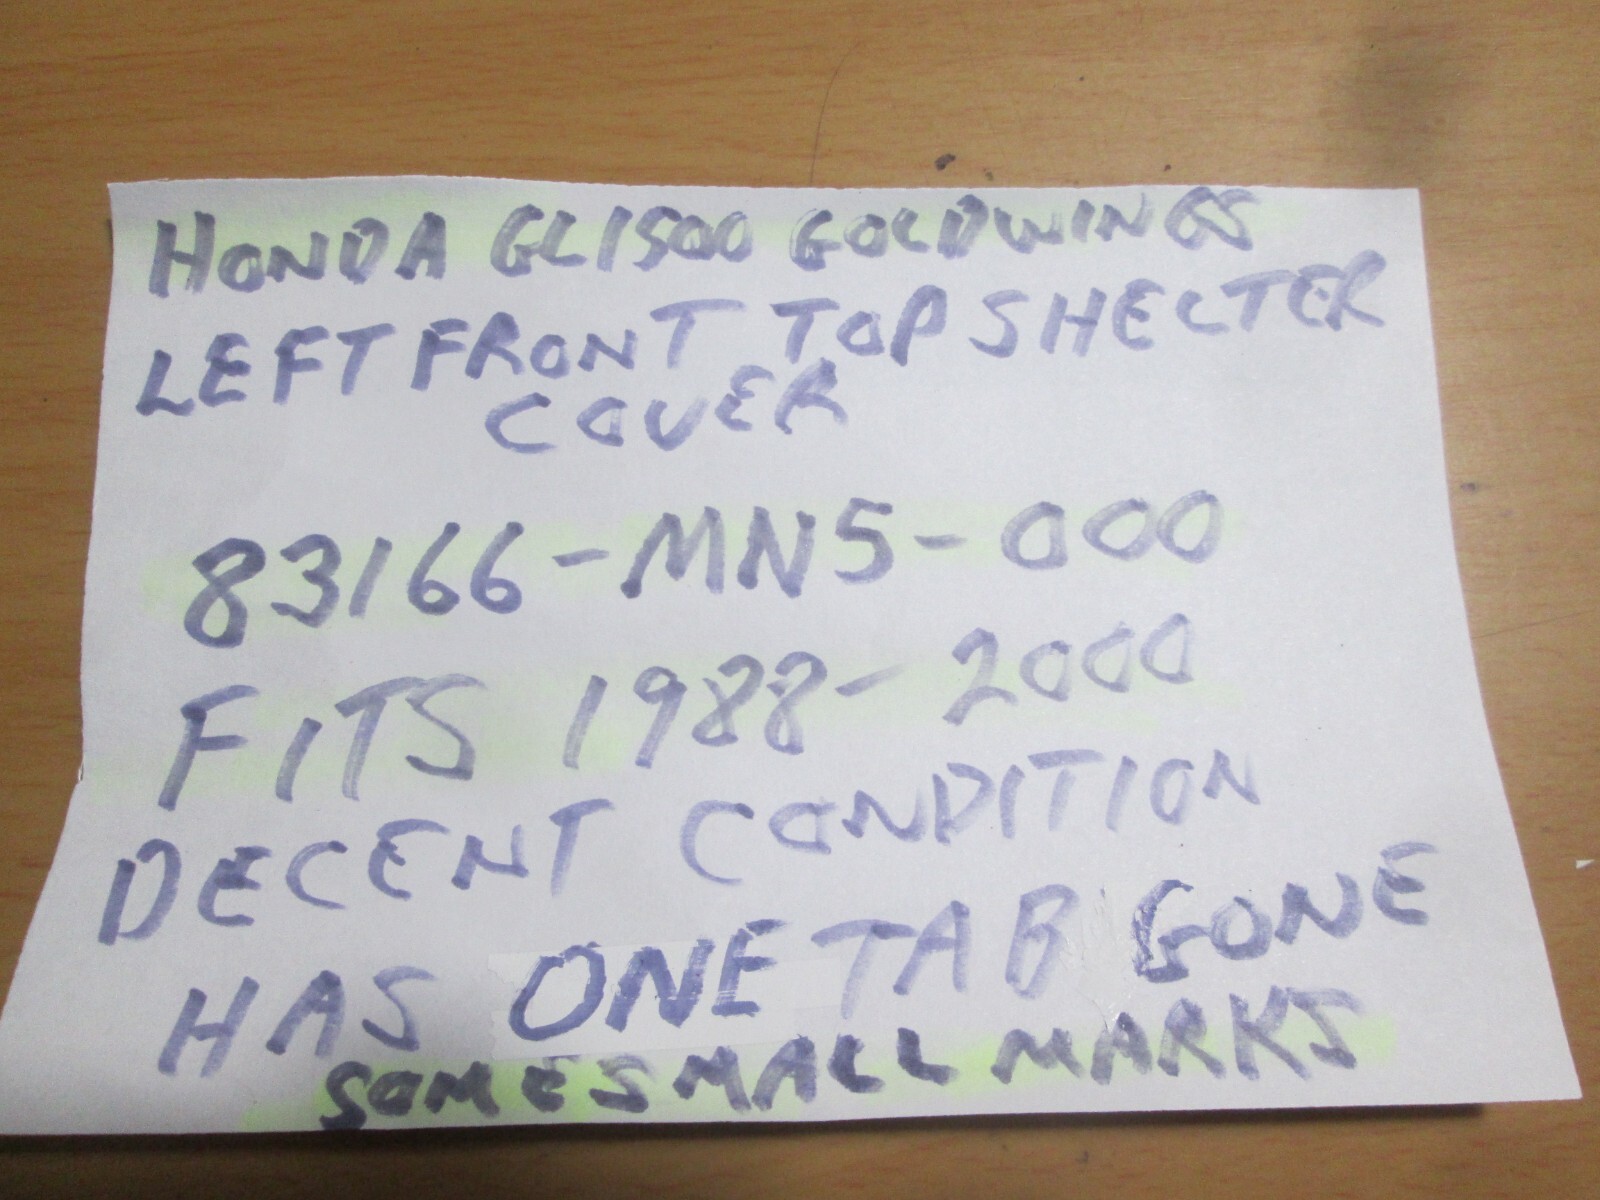 HONDA GL1500 GOLDWINGS
LEFT FRONT TOP SHELTER
COVER
83166-MN5-000
FITS 1988-2000
DECENT CONDITION
HAS ONE TAB GONE
SOME SMALL MARKS